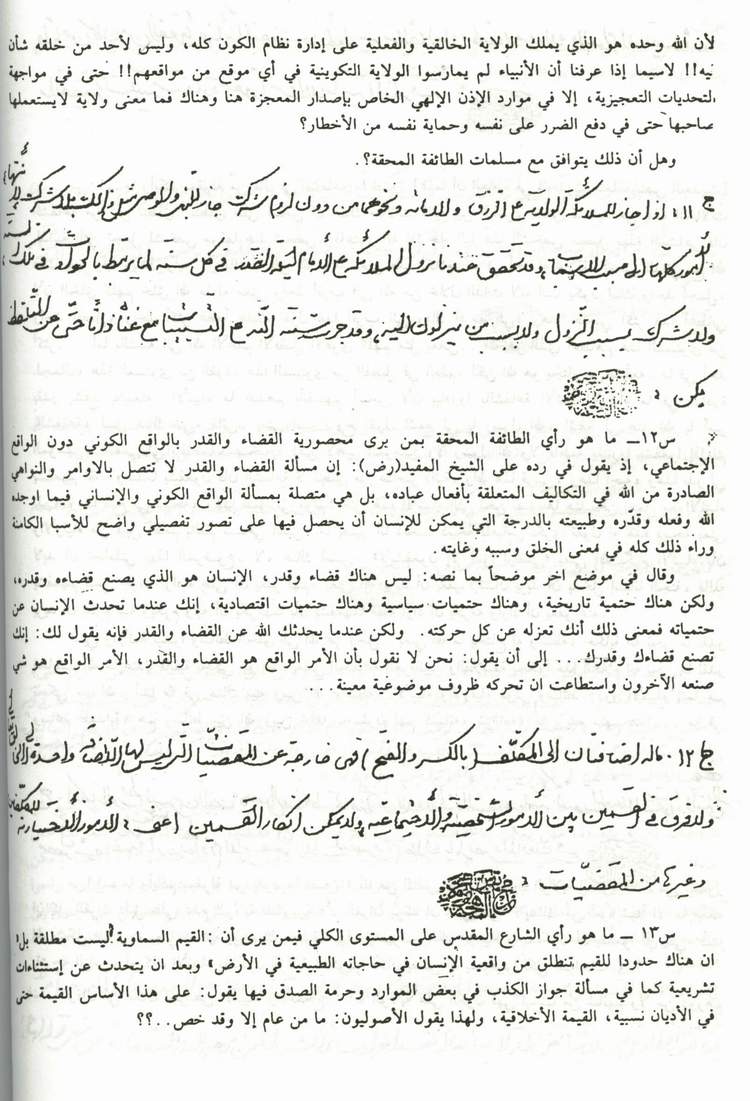 لأن الله وحده هو الذي يملك الولاية الخالقية والفعلية على إدارة نظام الكون كله، وليس لأحد من خلقه شأن
فيه!! لاسيما إذا عرفنا أن الأنبياء لم يمارسوا الولاية التكوينية في أي موقع من مواقعهم!! حتى في مواجهة
التحديات التعجيزية، إلا في موارد الإذن الإلهي الخاص بإصدار المعجزة هنا وهناك فما معنى ولاية لايستعملها
صاحبها حتى في دفع الضرر على نفسه وحماية نفسه من الأخطار؟
وهل أن ذلك يتوافق مع مسلمات الطائفة المحقة؟.
ج ١١: اذا جاز للملائكة الولاية على الرزق والاماتة ونحوهما من دون لزوم شرك جاز للنبي والوصي مثل ذلك بلا شرك
الأمور كلها إلى مسبب الاسباب، وقد تحقق عندنا نزول الملائكة على الأمام ليلة القدر في كل سنة لما يرتبط بالحوادث في تلك
ولا شرك بسبب النزول ولا بسبب من ينزلون اليه، وقد جرت
يمكن
س١٢ـ ما هو رأي الطائفة المحقة بمن يرى محصورية القضاء والقدر بالواقع الكوني دون الواقع
الإجتماعي، إذ يقول في رده على الشيخ المفيد(رض): إن مسألة القضاء والقدر لا تتصل بالاوامر والنواهي
الصادرة من الله في التكاليف المتعلقة بأفعال عباده، بل هي متصلة بمسألة الواقع الكوني والإنساني فيما اوجده
الله وفعله وقدّره وطبيعته بالدرجة التي يمكن للإنسان أن يحصل فيها على تصور تفصيلي واضح للأسبا الكامنة
وراء ذلك كله في معنى الخلق وسببه وغايته.
وقال في موضع اخر موضحاً بما نصه: ليس هناك قضاء وقدر، الإنسان هو الذي يصنع قضاءه وقدره،
ولكن هناك حتمية تاريخية، وهناك حتميات سياسية وهناك حتميات اقتصادية، إنك عندما تحدث الإنسان عن
حتمياته فمعنى ذلك أنك تعزله عن كل حركته. ولكن عندما يحدثك الله عن القضاء والقدر فإنه يقول لك: إنك
تصنع قضاءك وقدرك... إلى أن يقول: نحن لا نقول بأن الأمر الواقع هو القضاء والقدر، الأمر الواقع هو شي
صنعه الآخرون واستطاعت ان تحركه ظروف موضوعية معينة...
ج ١٢. ماله اضافتان الى المكلف (بالكسر والفتح) فهي خارجة عن المقضيات التي ليس لها الا اضافة واحدة
ولا فرق في القسمين بين الأمور الشخصية والأجتماعية ولا يمكن انكار القسمين اعني: الأمور الأختيارية للمكلفين
وغيرها من المقضيّات
س١٣ ــ ما هو رأي الشارع المقدس على المستوى الكلي فيمن يرى أن: القيم السماوية ليست مطلقة بل
ان هناك حدودا للقيم تنطلق من واقعية الإنسان في حاجاته الطبيعية في الأرض، وبعد ان يتحدث عن إستثناءات
تشريعية كما في مسألة جواز الكذب في بعض الموارد وحرمة الصدق فيها يقول: على هذا الأساس القيمة حتى
في الأديان نسبية، القيمة الأخلاقية، ولهذا يقول الأصوليون: ما من عام إلا وقد خص..؟؟